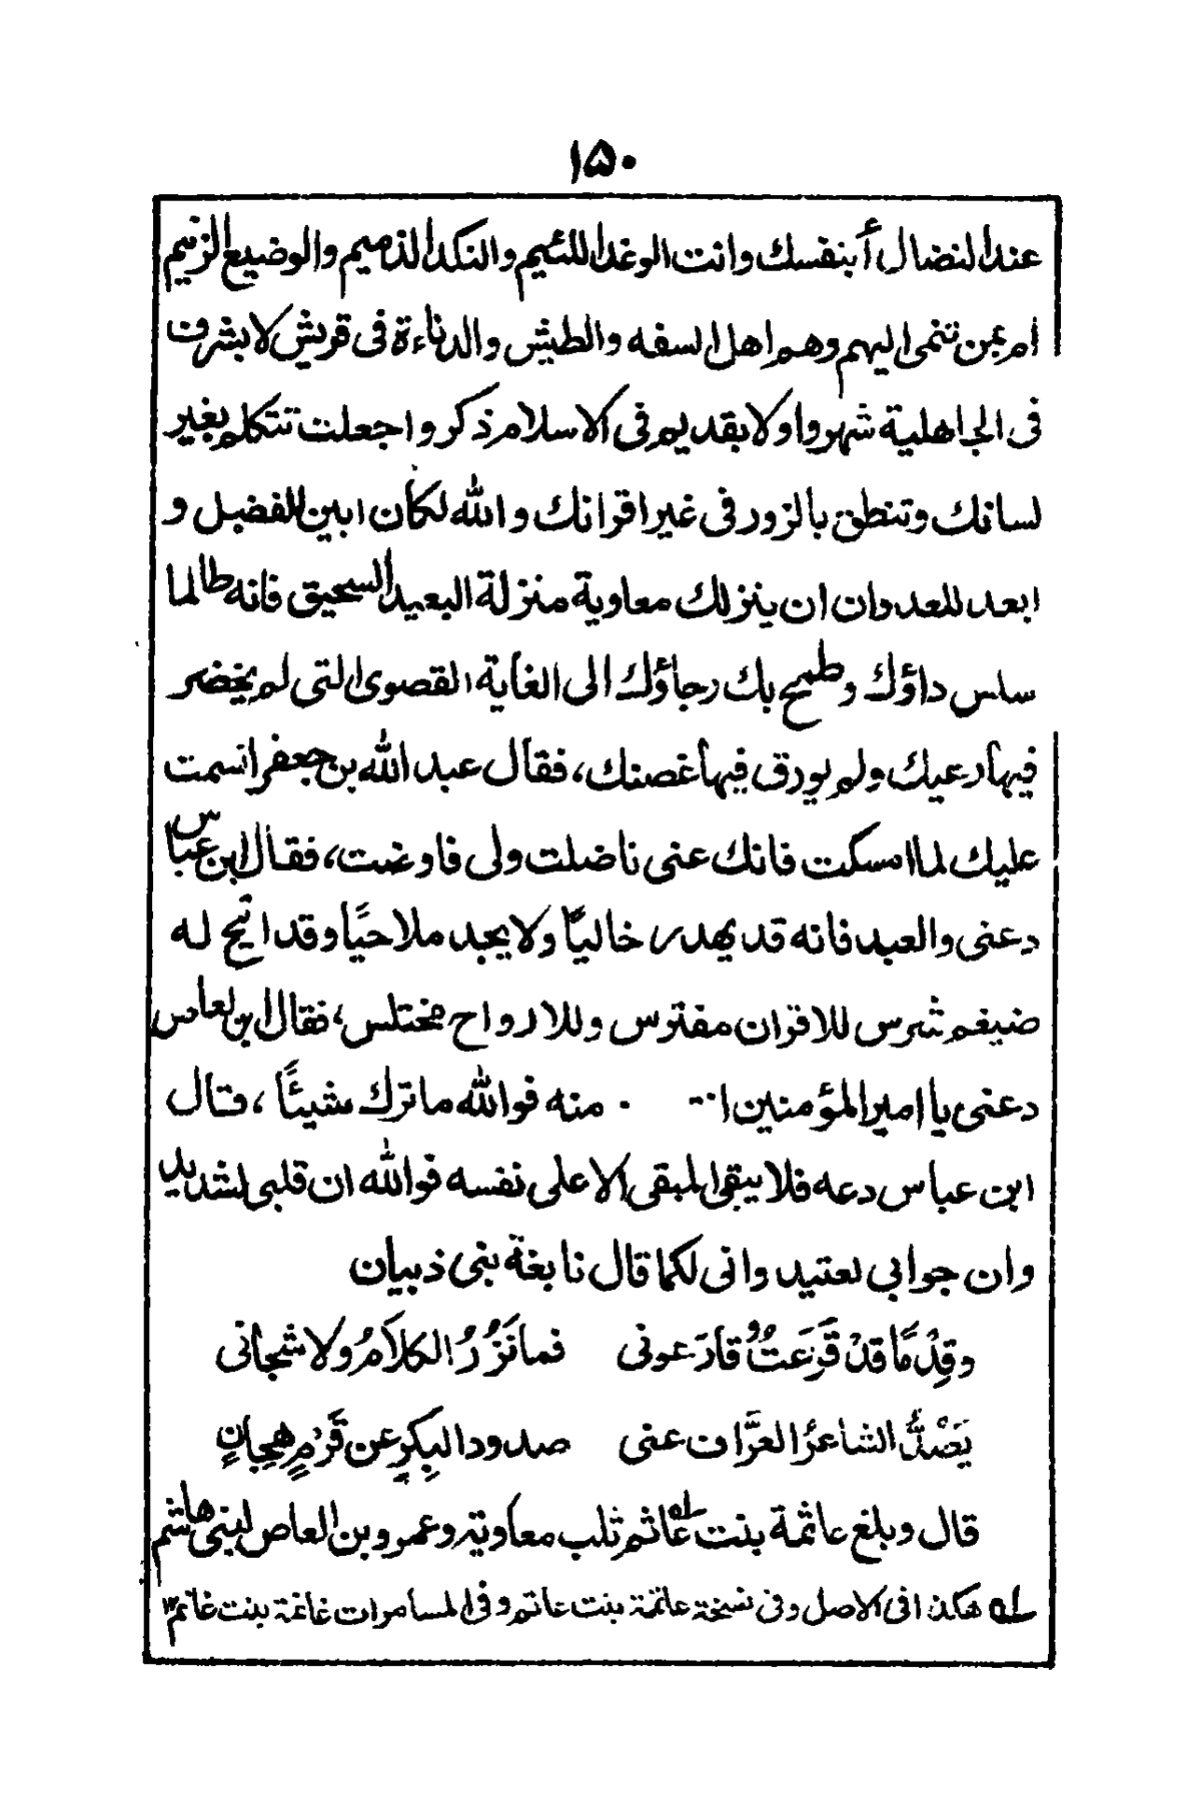 ١٥٠
عند النضال أبنفسك وانت الوغد اللئيم والنكد الذميم والوضيع الزنيم
ام بمن تنمى اليهم وهم اهل السفه والطيش والدناءة فى قريش لا بشرف
فى الجاهلية شهروا ولا بقديم فى الاسلام ذكروا جعلت تتكلم بغير
لسانك وتنطق بالزور فى غير اقرانك والله لكان ابين للفضل و
ابعد للعدوان ان ينزلك معاوية منزلة البعيد السحيق فانه طالما
سلس داؤك وطمح بك رجاؤك الى الغاية القصوى التى لم يخضر
فيها رعيك ولم يورق فيها غصنك، فقال عبد الله بن جعفر اقسمت
عليك لما امسكت فانك عنى ناضلت ولى فاوضت، فقال ابن عباس
دعنى والعبد فانه قد يهدر خاليًا ولا يجد ملاحيًا وقد اتيح له
ضيغم شرس للاقران مفترس وللارواح مختلس، فقال ابن العاص
دعنى يا امير المؤمنين منه فوالله ما ترك شيئًا، قال
ابن عباس دعه فلا يبقى المبقى الا على نفسه فوالله ان قلبى لشديد
وان جوابى لعتيد وانى لكما قال نابغة بنى ذبيان
وقِدْمًا قدْ قَرَعتُ وقارَعونى فما نَزُرُ الكلاَمُ ولا شجانى
يَصُدُّ الشاعرُ العرَّاف عنى صدود البِكرِ عن قَرْمٍ هِجانِ
قال وبلغ عاثمة بنت عاثم ثلب معاوية وعمرو بن العاص لبنى هاشم
له هكذا فى الاصل وفى نسخة عاتمة بنت عاتم وفى المسامرات غانمة بنت غانم ١٢